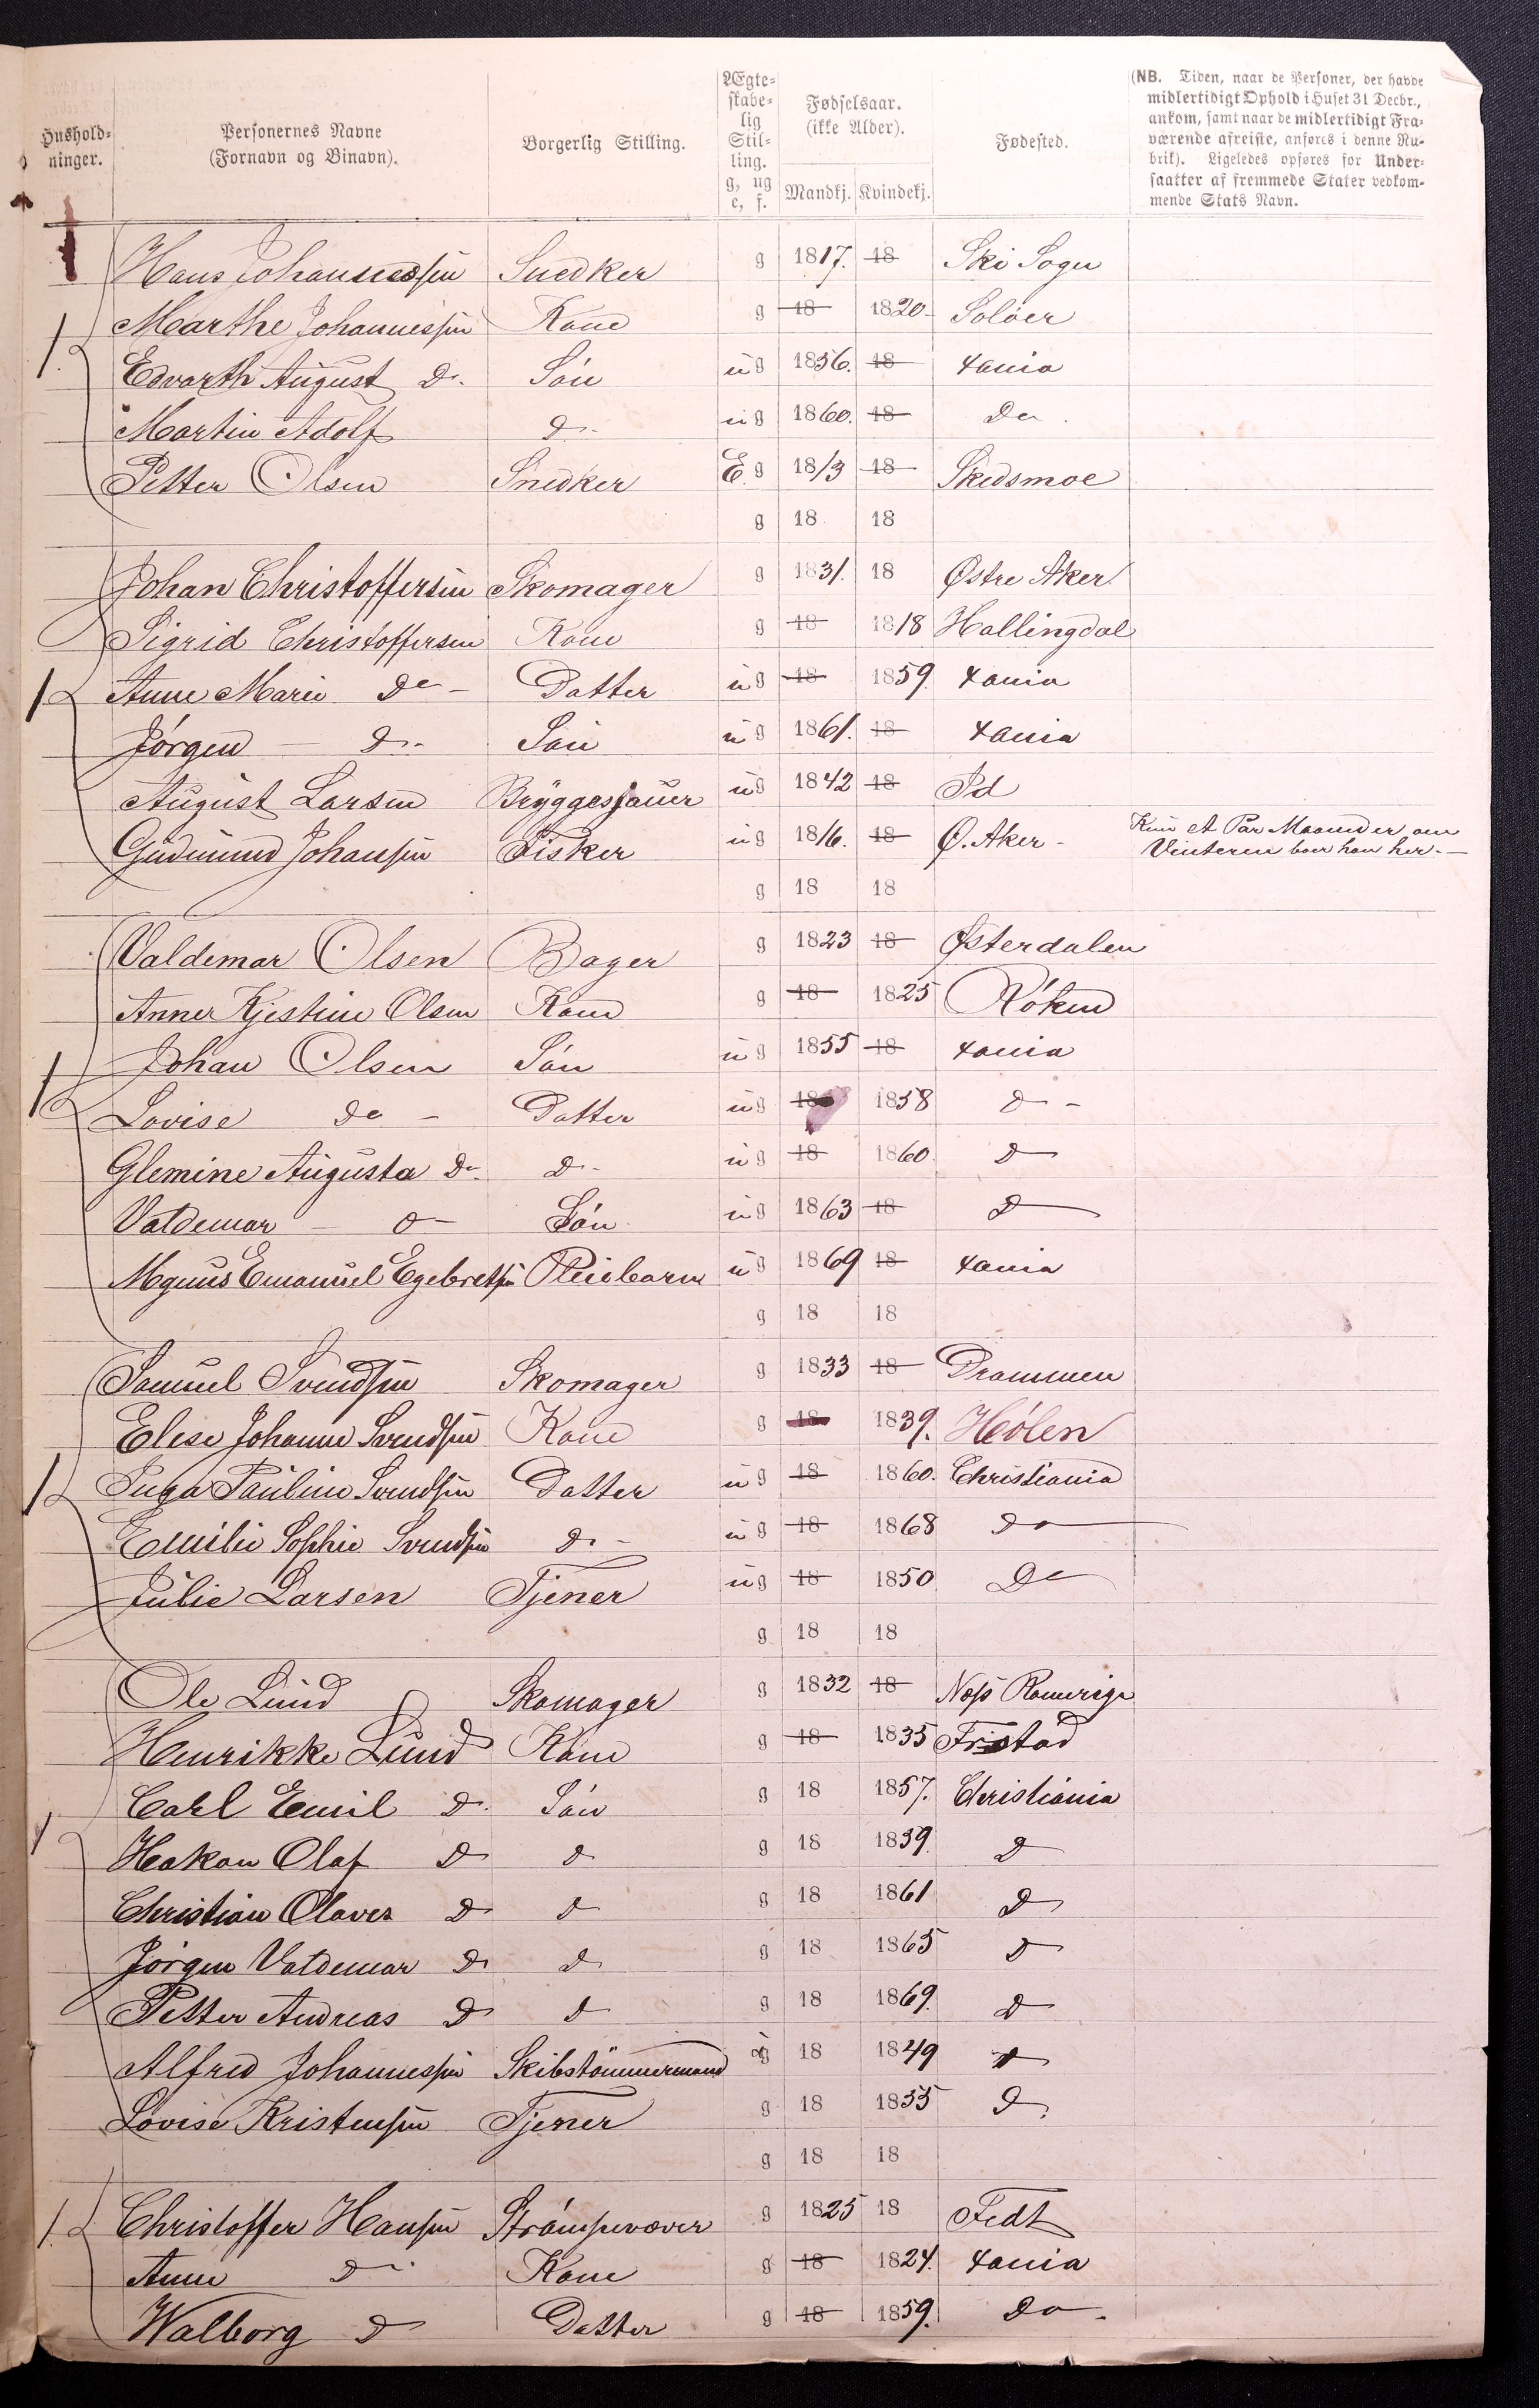 Hushold-
ninger.
Personernes Navne
(Fornavn og Binavn).
Borgerlig Stilling.
Ægte-
skabe-
lig
Stil-
ling.
g, ug
e, f.
Fødselsaar.
(ikke Alder).
Mandkj. Kvindekj.
Fødested.
(NB. Tiden, naar de Personer, der havde
midlertidigt Ophold i Huset 31 Decbr.,
ankom, samt naar de midlertidigt Fra-
værende afreiste, anføres i denne Ru-
brik). Ligeledes opføres for Under-
saatter af fremmede Stater vedkom-
mende Stats Navn.
Hans Johannessen Snedker g 1817. 18 Ski Sogn
1. Marthe Johannessen Kone g 18 1820. Solöer
Edvarth August Do. Sön ug 1856. 18 Xania
Martin Adolf Do. ug 1860. 18 Do.
Petter Olsen Snedker E g 1813 18 Skedsmoe
g 18 18
Johan Christoffersen Skomager g 1831. 18 Østre Aker
Sigrid Christoffersen Kone g 18 1818 Hallingdal
1 Anne Marie Do - Datter ug 18 1859. Xania
Jörgen - Do - Sön ug 1861. 18 Xania
August Larsen Bryggesjauer ug 1842 18
Gudmund Johansen Fisker ug 1816. 18 Ø. Aker - Kun et Par Maaneder om
Vinteren boer han her. -
g 18 18
Valdemar Olsen Bager g 1823 18 Østerdalen
Anne Kjestine Olsen Kone g 18 1825 Röken
1 Johan Olsen Sön ug 1855 18 Xania
Lovise do - Datter ug 18 1858 Do -
Glemine Augusta Do. Do - ug 18 1860. Do
Valdemar - Do - Sön ug 1863 18 Do
Mgnus Emanuel Egebretsen Pleiebarn ug 1869 18 Xania
g 18 18
Samuel Svendsen Skomager g 1833 18 Drammen
Elise Johanne Svendsen Kone g 18 1839. Hölen
1 Inga Pauline Svendsen Datter ug 18 1860. Christiania
Emilie Sophie Svendsen Do - ug 18 1868 Do
Julie Larsen Tjener ug 18 1850 Do
g 18 18
Ole Lund Skomager g 1832 18 Næs Romerige
Henrikke Lund Kone g 18 1835 Fristad
Carl Emil Do. Sön g 18 1857. Christiania
1 Hakon Olaf Do Do g 18 1859. Do
Christian Olaves Do Do g 18 1861 Do
Jörgen Valdemar Do Do g 18 1865 Do
Petter Andreas Do Do g 18 1869. Do
Alfred Johannessen Skibstömmermand ug 18 1849 Do
Lovise Kristensen Tjener g 18 1835 Do.
g 18 18
1. Christoffer Hansen Strömpevæver g 1825 18 Fedt
Anne Do Kone g 18 1824. Xania
Walborg Do Datter g 18 1859. Do.